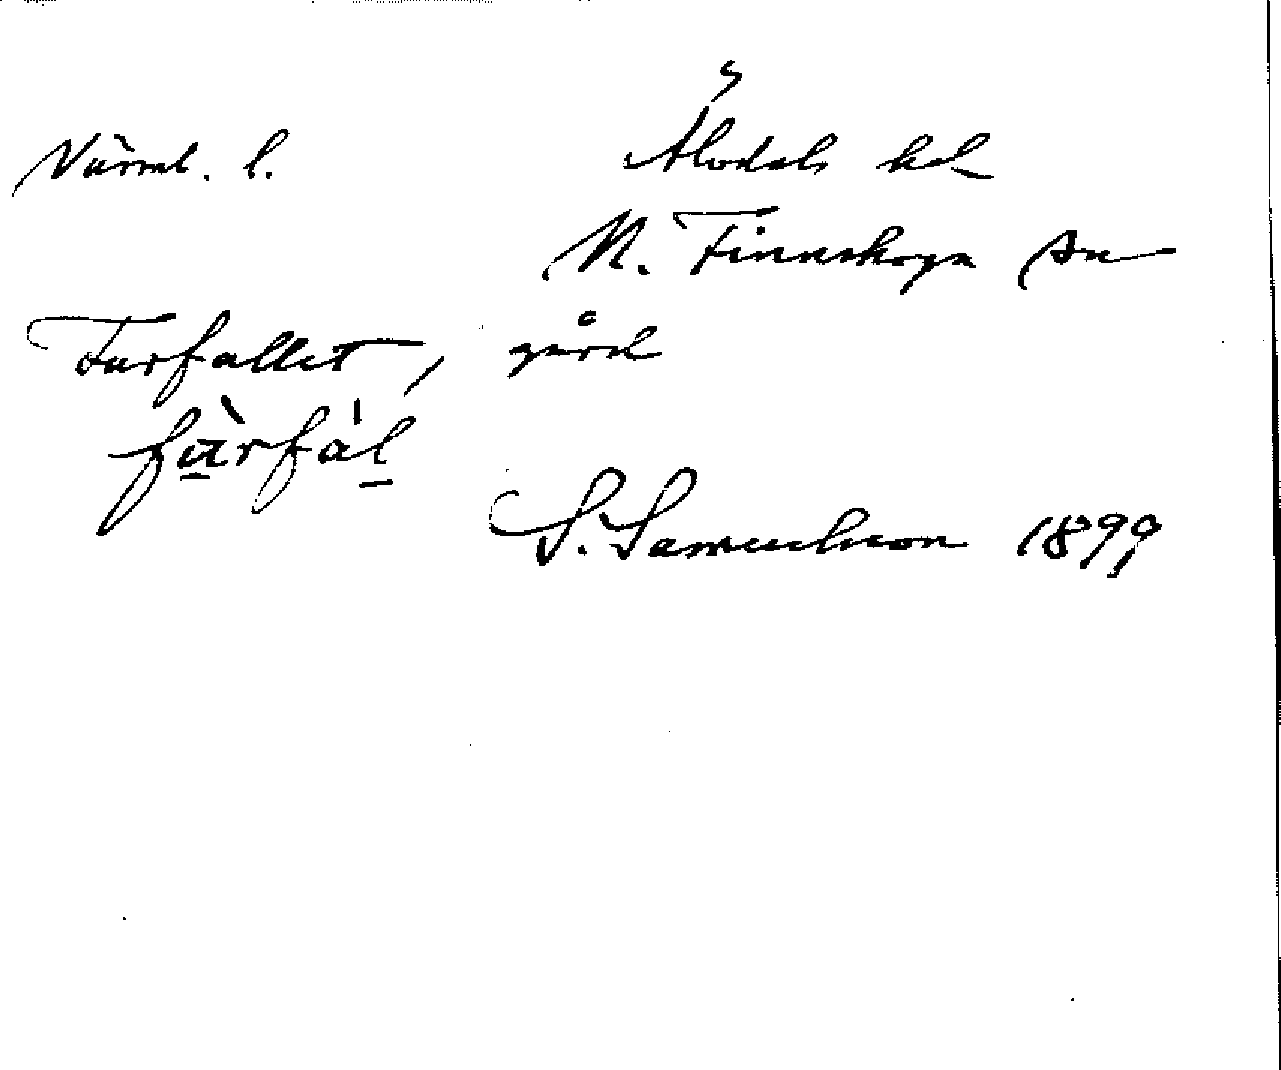 Värml. l. Älvdals hd
N. Finnskoga sn
Furfallet, gård
fàrfál
S. Samuelsson 1899